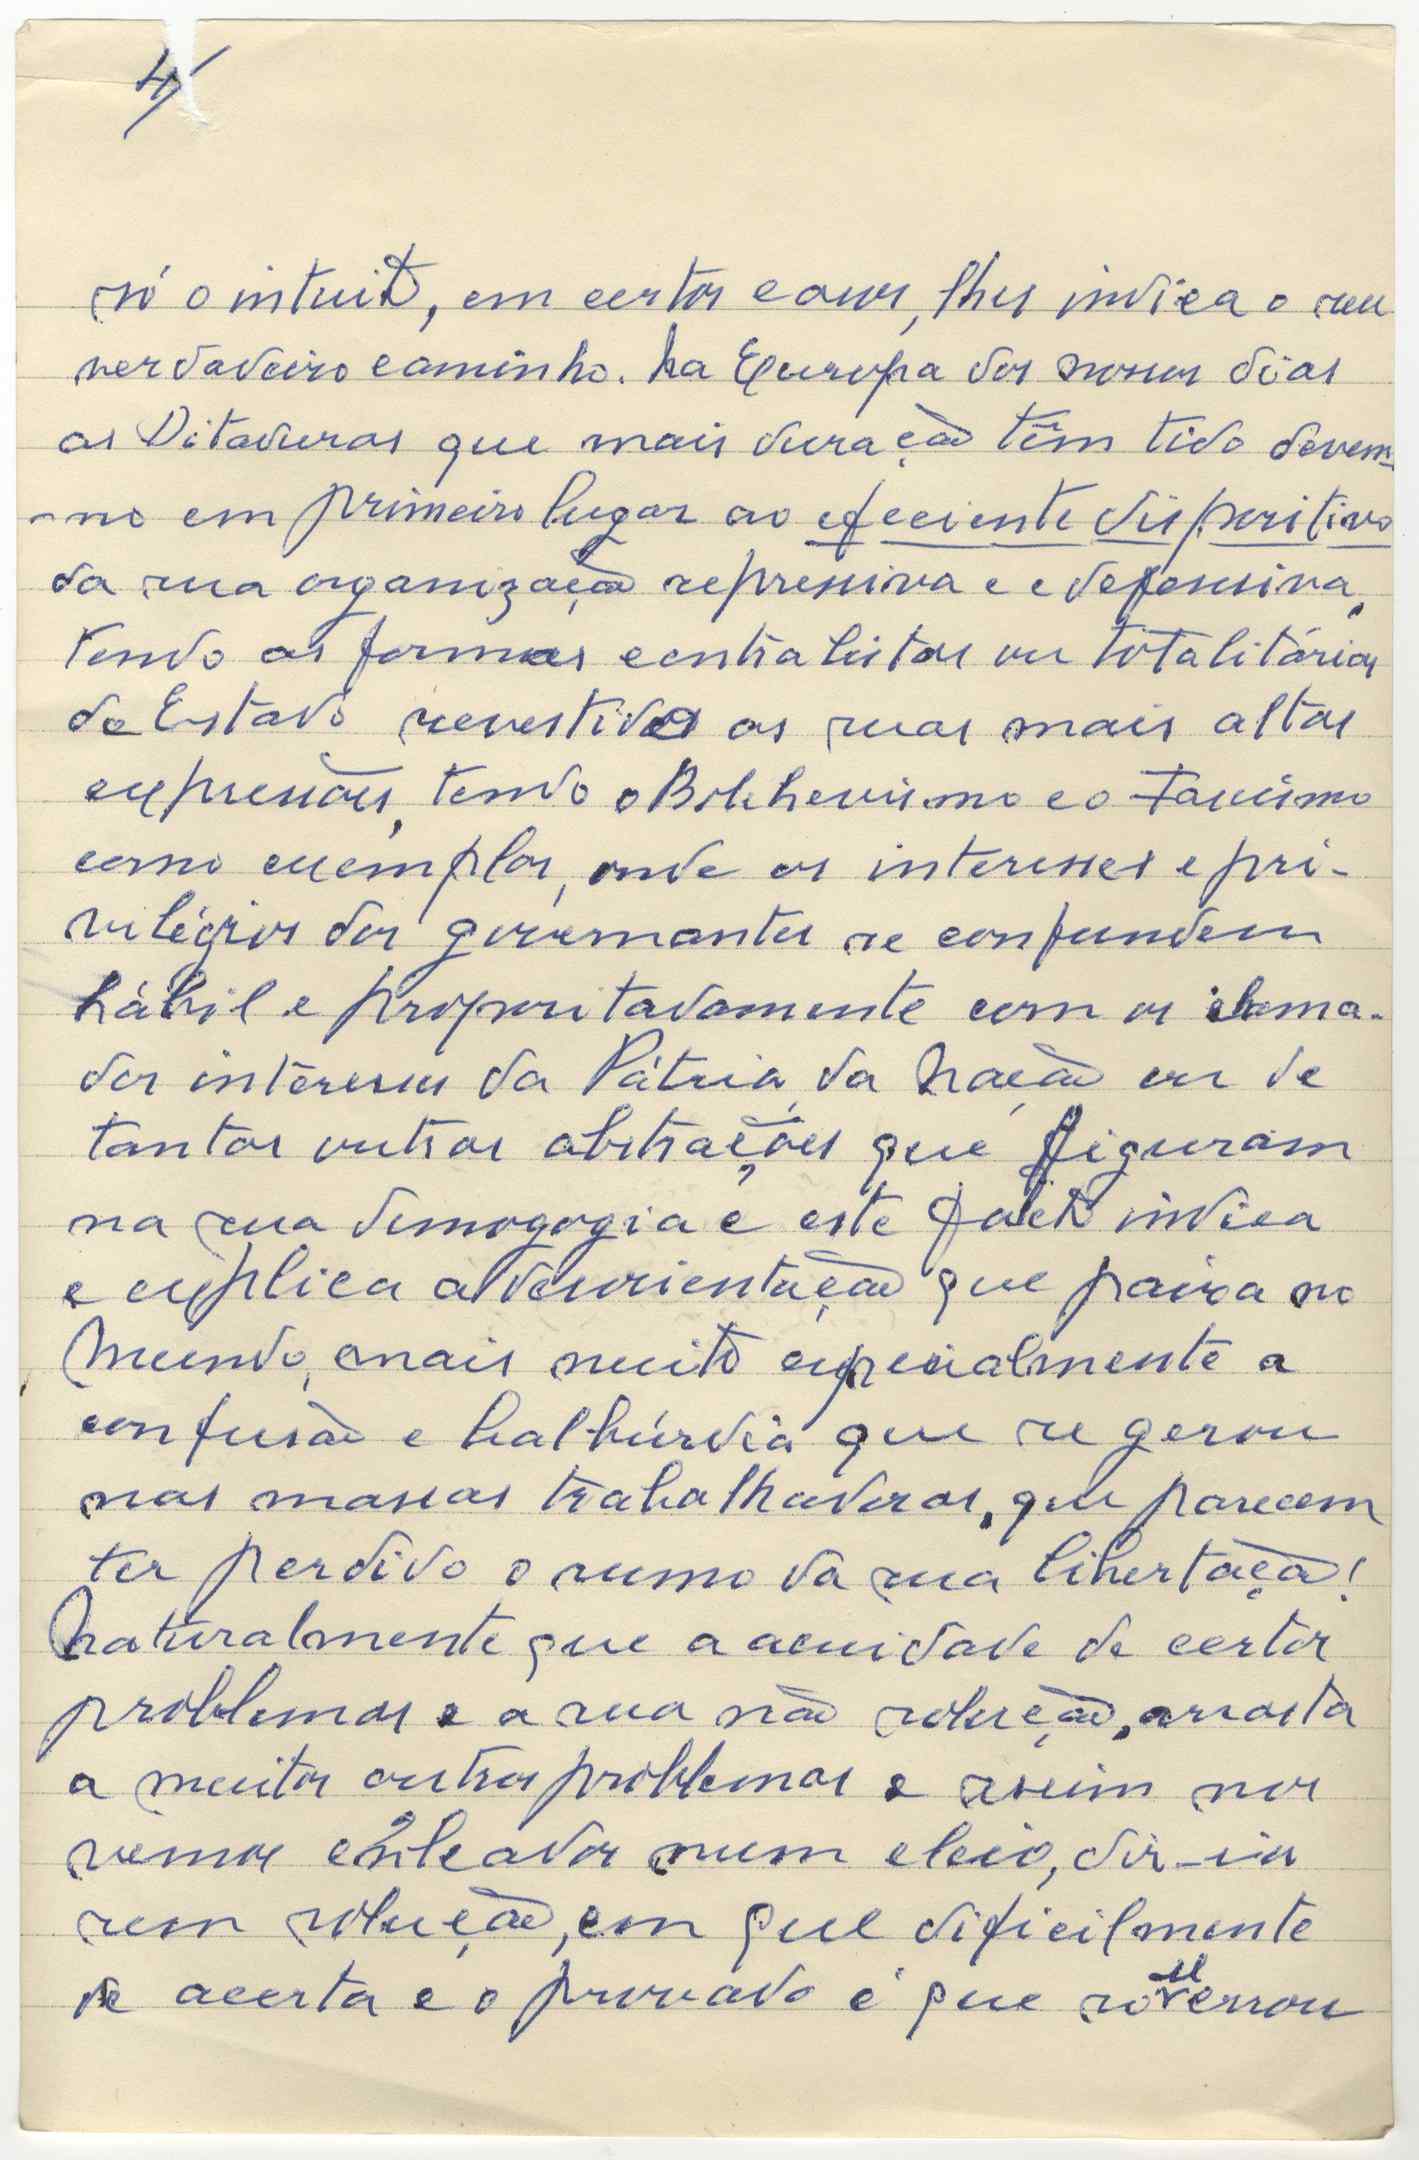 4/
só o intuito, em certos casos, lhes indica o seu
verdadeiro caminho. Na Europa dos nossos dias
as Ditaduras que mais duração têm tido devem-
-no em primeiro lugar ao efeciente dispositivo
da sua organização repressiva e e defensiva,
tendo as formas centralistas ou totalitárias
do Estado revestidos as suas mais altas
expressões, tendo o Bolchevismo e o Fascismo
como exemplos, onde os interesses e pri-
vilégios dos governantes se confundem
hábil e propositadamente com os chama-
dos intéresses da Pátria, da Nação ou de
tantas outras abstrações que figuram
na sua demogogia e este facto indica
e explica a desorientação que paira no
Mundo, e mais muito especialmente a
confusão e balbúrdia que se gerou
nas massas trabalhadoras, que parecem
ter perdido o rumo da sua libertação!
Naturalmente que a acuidade de certos
problemas e a sua não solução, arrasta
a muitos outros problemas e assim nos
vemos enleados num elcio, dir-se-ia
sem solução, em que dificilmente
se acerta e o provado é que só se errou